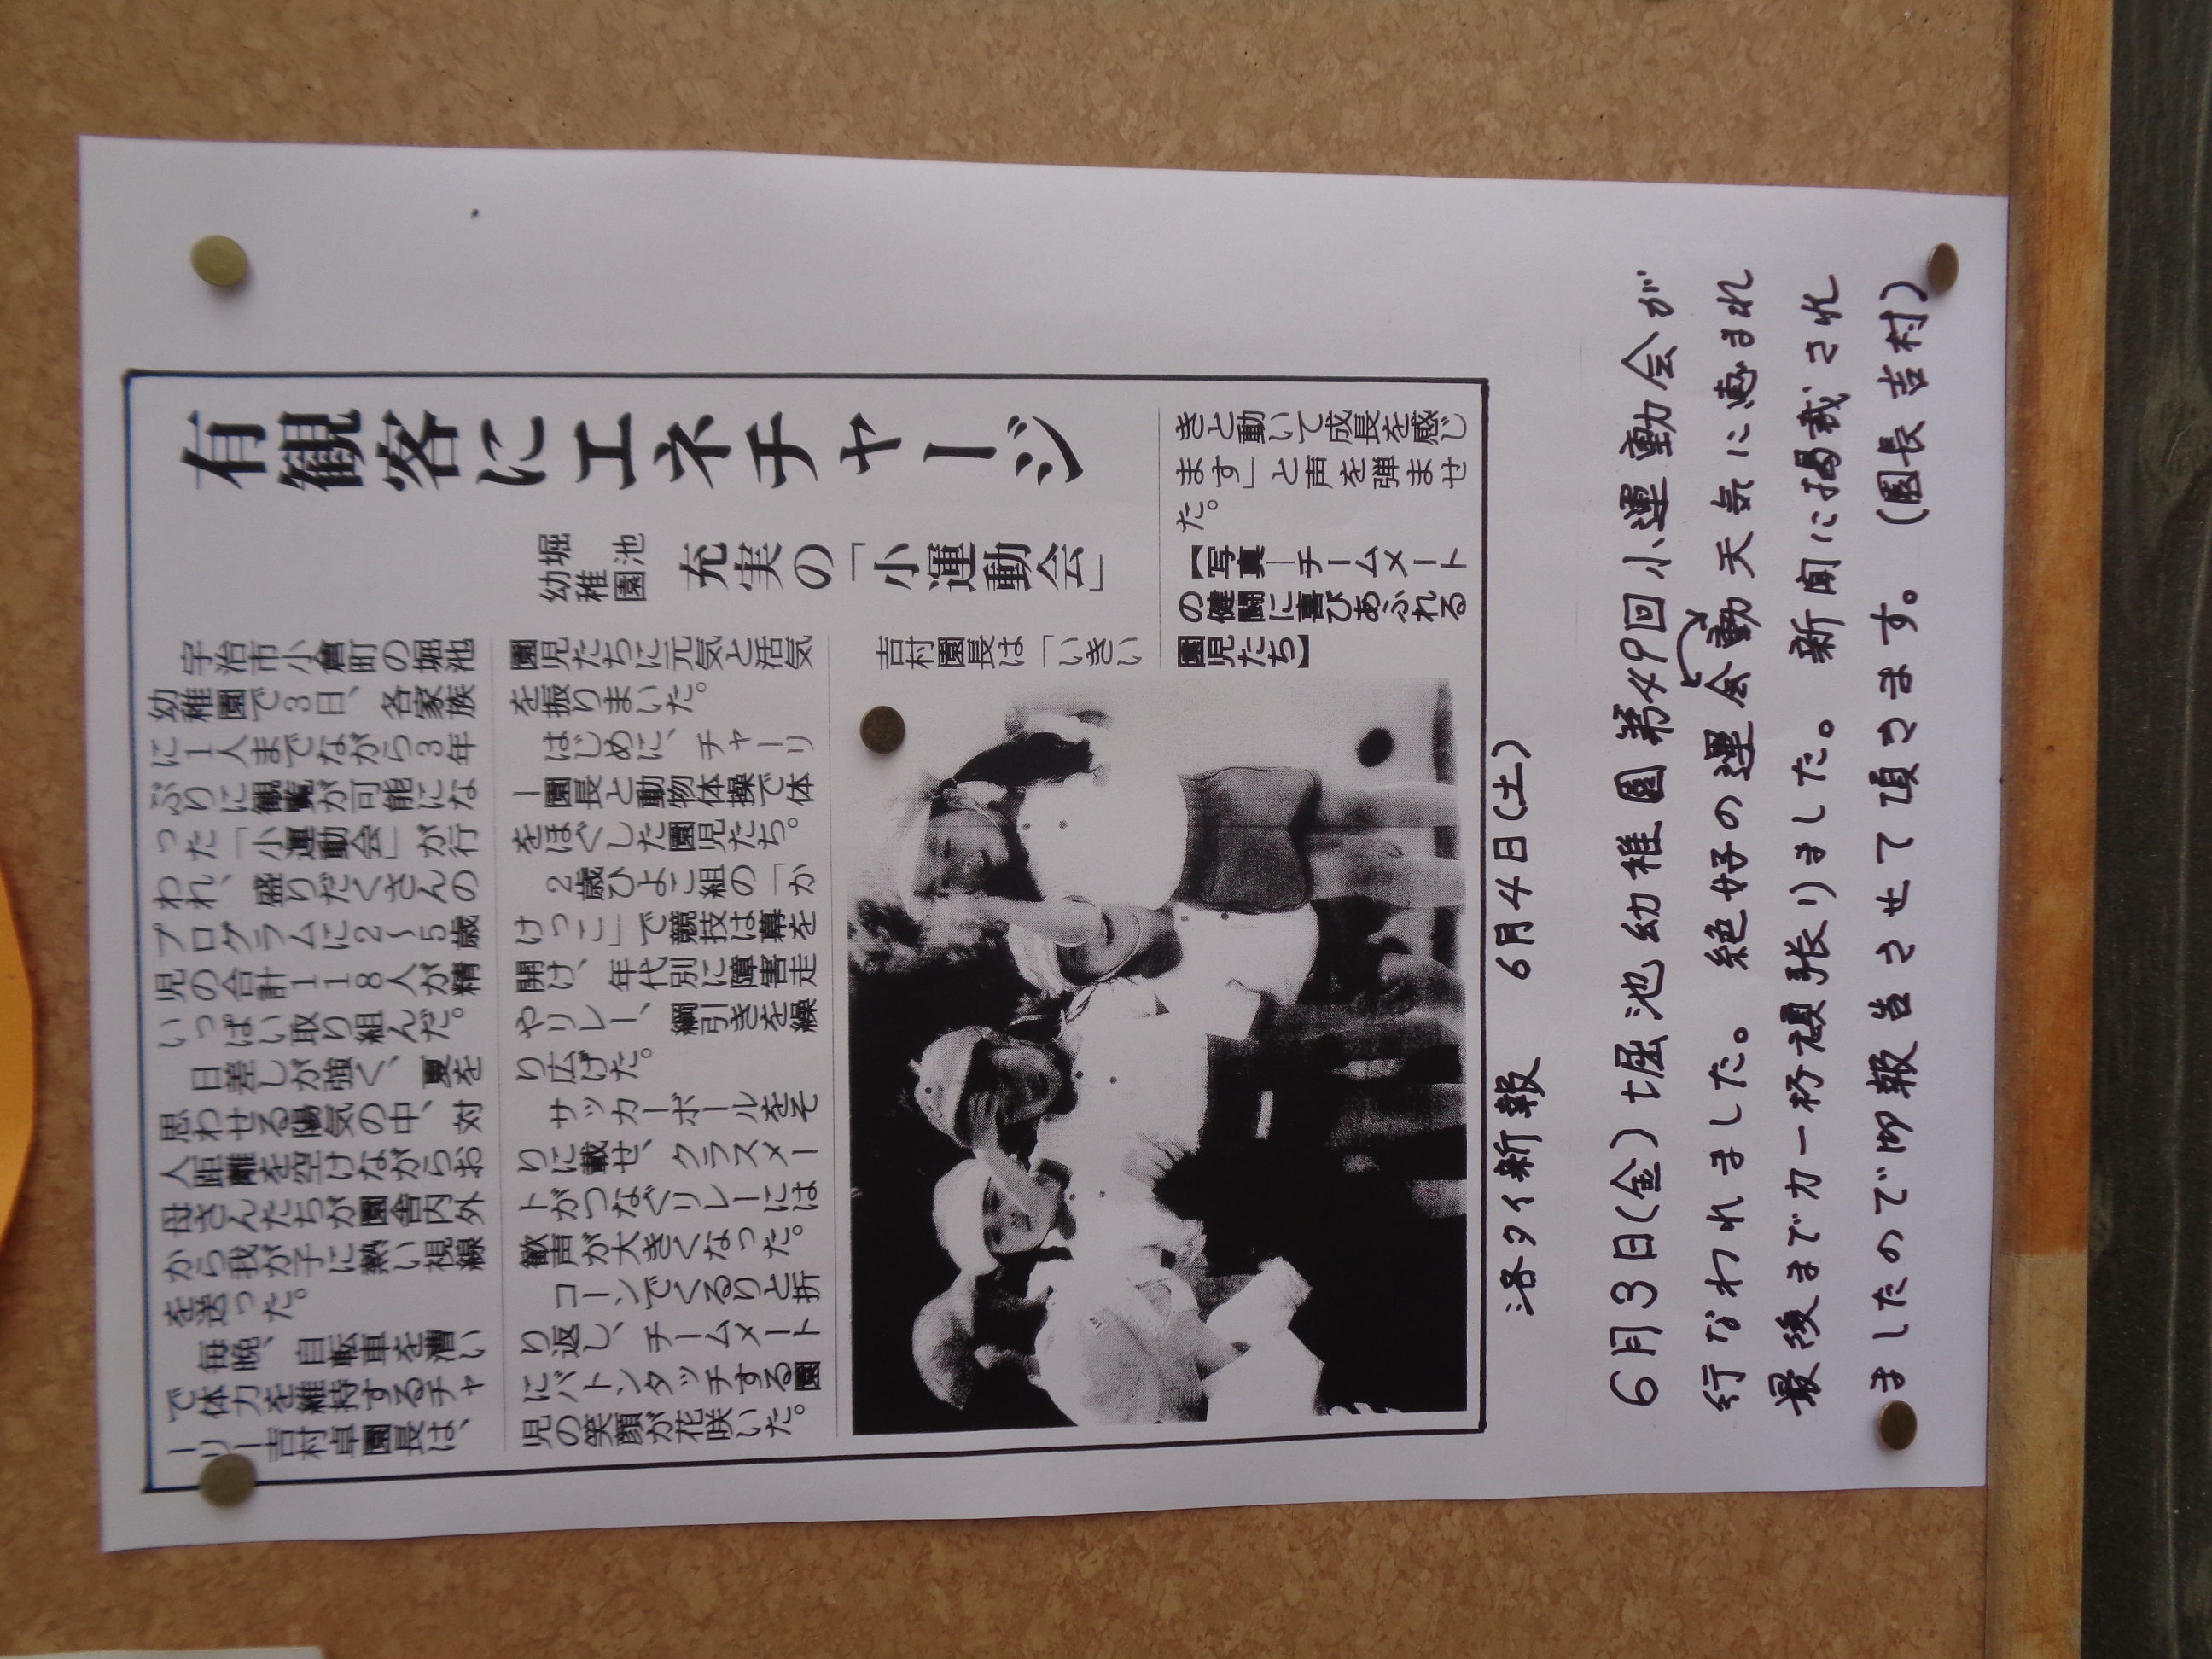 有観客にエネチャージ
堀池
幼稚園
充実の「小運動会」
宇治市小倉町の堀池
幼稚園で3日、各家族
に1人までながら3年
ぶりに観覧が可能にな
った「小運動会」が行
われ、盛りだくさんの
プログラムに2〜5歳
児の合計118人が精
いっぱい取り組んだ。
日差しが強く、夏を
思わせる陽気の中、対
人距離を空けながらお
母さんたちが園舎内外
から我が子に熱い視線
を送った。
毎晩、自転車を漕い
で体力を維持するチャ
ーリー吉村卓園長は、
園児たちに元気と活気
を振りまいた。
はじめに、チャーリ
ー園長と動物体操で体
をほぐした園児たち。
2歳ひよこ組の「か
けっこ」で競技は幕を
開け、年代別に障害走
やリレー、綱引きを繰
り広げた。
サッカーボールをそ
りに載せ、クラスメー
トがつなぐリレーには
歓声が大きくなった。
コーンでくるりと折
り返し、チームメート
にバトンタッチする園
児の笑顔が花咲いた。
吉村園長は「いきい
きと動いて成長を感じ
ます」と声を弾ませ
た。
【写真―チームメート
の健闘に喜びあふれる
園児たち】
洛タイ新報 6月4日(土)
6月3日(金)堀池幼稚園第49回小運動会が
行なわれました。絶好の運会動天気に恵まれ
最後まで力一杯頑張りました。新聞に掲載され
ましたので御報告させて頂きます。(園長吉村)